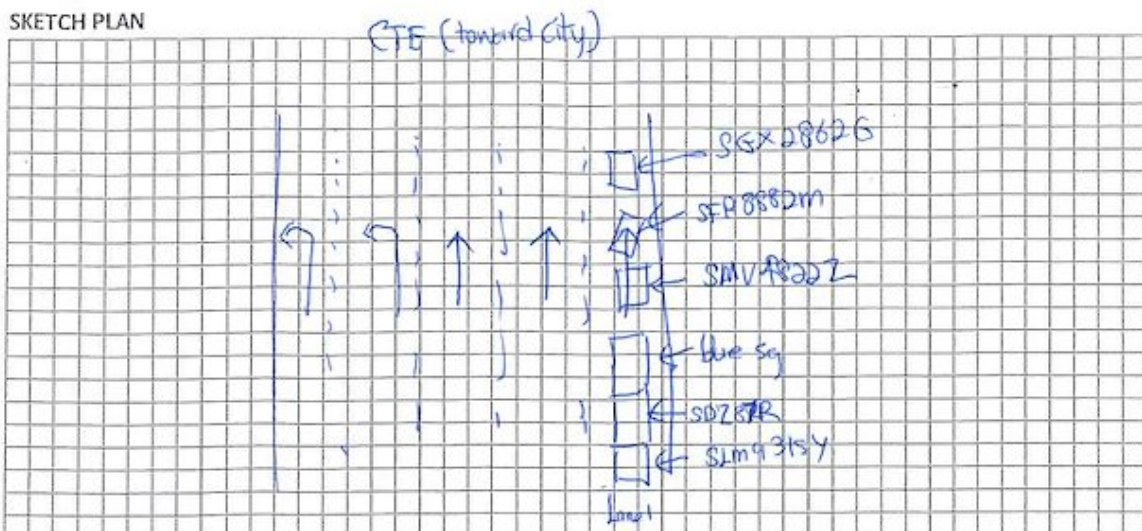 SKETCH PLAN
CTE (toward City)
SGX2862G
SFP8882m
SMV4822Z
blue sg
SDZ87R
SLM9315Y
Lane 1